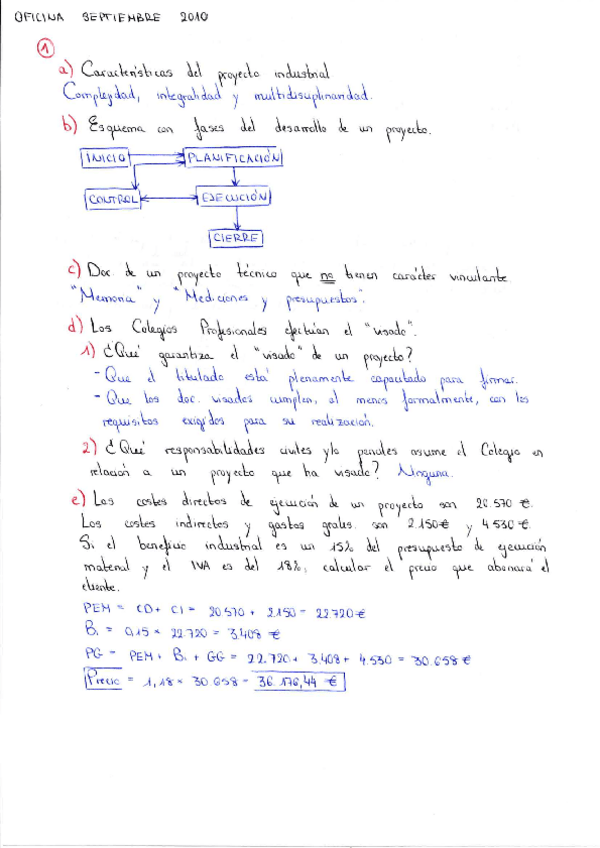 OFICINA SEPTIEMBRE 2010
1
a) Características del proyecto industrial
Complejidad, integralidad y multidisciplinaridad.
b) Esquema con fases del desarrollo de un proyecto.
INICIO PLANIFICACIÓN
CONTROL EJECUCIÓN
CIERRE
c) Doc. de un proyecto técnico que no tienen carácter vinculante
"Memoria" y "Mediciones y presupuestos".
d) Los Colegios Profesionales efectúan el "visado".
1) ¿Qué garantiza el "visado" de un proyecto?
- Que el titulado está plenamente capacitado para firmar.
- Que los doc. visados cumplen, al menos formalmente, con los
requisitos exigidos para su realización.
2) ¿Qué responsabilidades civiles y/o penales asume el Colegio en
relación a un proyecto que ha visado? Ninguna.
e) Los costes directos de ejecución de un proyecto son 20.570 €.
Los costes indirectos y gastos grales. son 2.150 € y 4.530 €.
Si el beneficio industrial es un 15% del presupuesto de ejecución
material y el IVA es del 18%, calcular el precio que abonará el
cliente.
PEM = CD + CI = 20.570 + 2.150 = 22.720 €
Bi = 0,15 × 22.720 = 3.408 €
PG = PEM + Bi + GG = 22.720 + 3.408 + 4.530 = 30.658 €
Precio = 1,18 × 30.658 = 36.176,44 €